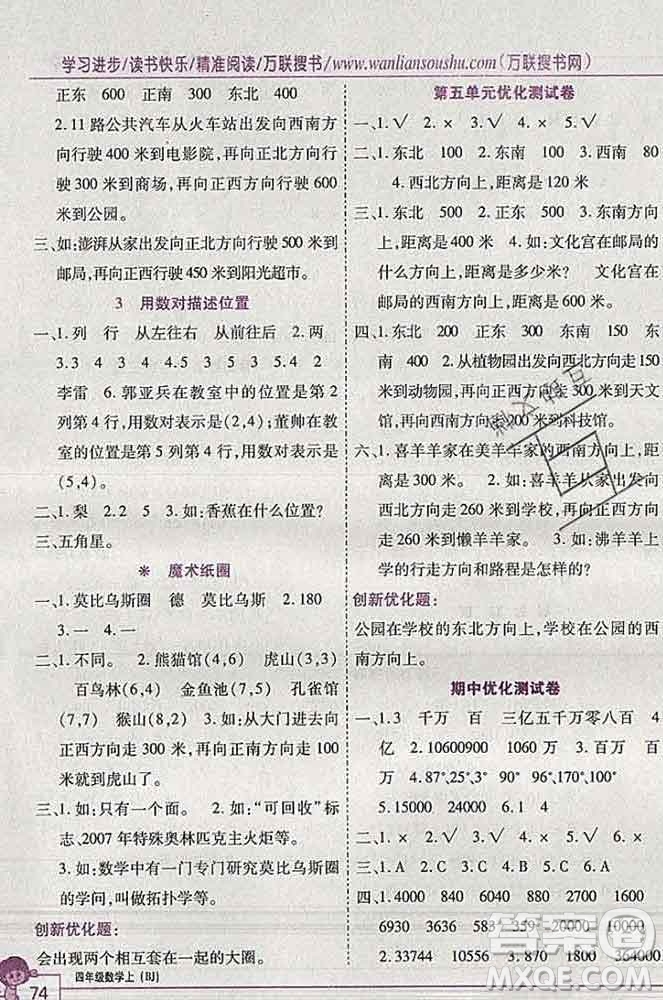 学习进步/读书快乐/精准阅读/万联搜书/www.wanliansoushu.com(万联搜书网)
正东 600 正南 300 东北 400
2.11 路公共汽车从火车站出发向西南方
向行驶 400 米到电影院,再向正北方向行
驶 300 米到商场,再向正西方向行驶 600
米到公园。
三、如:澎湃从家出发向正北方向行驶 500 米到
邮局,再向正西方向行驶 450 米到阳光超市。
3 用数对描述位置
一、1.列 行 从左往右 从前往后 2.两
3.3 4 3 4 4.3 5 1 3 5.4 2
李雷 6.郭亚兵在教室中的位置是第 2
列第 4 行,用数对表示是(2,4);董帅在教
室的位置是第 5 列第 4 行,用数对表示是
(5,4)。
二、1.梨 2.2 5 3.如:香蕉在什么位置?
三、五角星。
* 魔术纸圈
一、1.莫比乌斯圈 德 莫比乌斯 2.180
3.一 4.一
二、1.不同。 2.熊猫馆(4,6) 虎山(3,3)
百鸟林(5,2) 金鱼池(7,5) 孔雀馆
(7,7) 猴山(8,3) 3.如:从大门进去向
正东方向走 300 米,再向正北方向走 300
米,再向正西方向走 400 米就到虎山了。
三、1.如:只有一个面。 2.如:“可回收”标
志、2007 年特殊奥林匹克主火炬等。
3.如:数学中有一门专门研究莫比乌斯圈
的学问,叫做拓扑学等。
创新优化题:
会出现两个相互套在一起的大圈。
74
四年级数学上(BJ)
第五单元优化测试卷
一、1.√ 2.× 3.× 4.× 5.√
二、1.东北 100 2.东南 100 3.西南 80
4.西北方向上,距离是 120 米
三、1.东北 500 2.东南 640 3.如:文化宫在邮局的
什么方向上,距离是多少米? 文化宫在
邮局的西北方向上,距离是 500 米。
四、1.西南 200 正东 300 东南 150 东
南 400 2.从植物园出发向正北方向走 150
米到动物园,再向正东方向走 300 米到天文
馆,再向正南方向走 300 米到科技馆。
六、1.喜羊羊家在美羊羊家的西南方向上,
距离是 300 米。 2.如:喜羊羊从家出发
向正东方向走 260 米到沸羊羊家,再向正
北方向走 260 米到懒羊羊家。 3.如:沸羊羊上
学的行走方向和路程是怎样的?
创新优化题:
公园在学校的东北方向上,学校在公园的西
南方向上。
期中优化测试卷
一、1.3 千万 百 三亿五千万零八百 4
亿 2.10600900 1060 万 3.百万
十万 4.87°、
5.15000 24000
二、1.× 2.√ 3.× 4.× 5.√
三、1.A 2.C 3.B 4.A 5.C
四、1.4000 840 6080 640
6930 3636 583 20000 10000
2.33744 10556
MXQE.COM